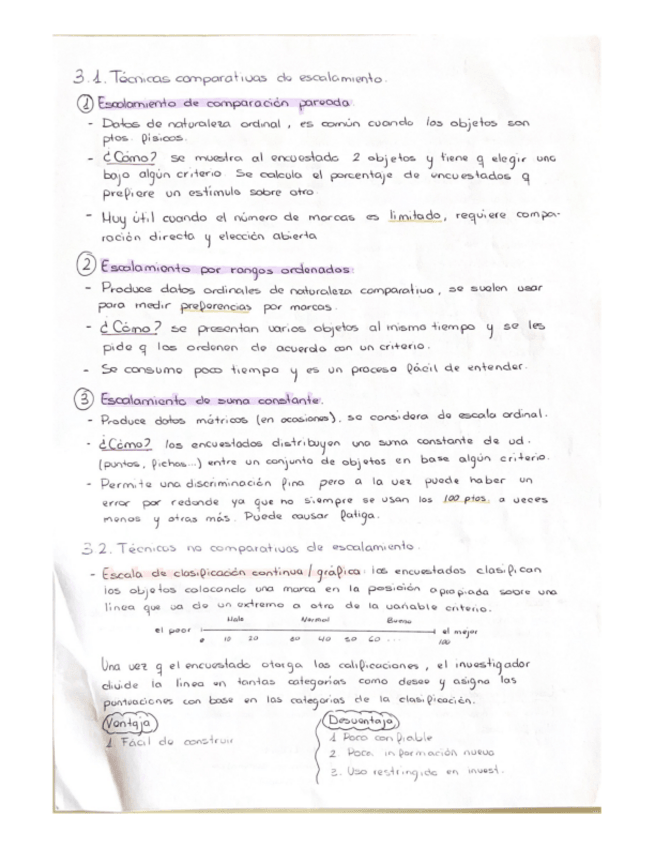 3.1. Técnicas comparativas de escalamiento.
① Escalamiento de comparación pareada.
- Datos de naturaleza ordinal, es común cuando los objetos son
ptos. físicos.
- ¿Cómo? se muestra al encuestado 2 objetos y tiene q elegir uno
bajo algún criterio. Se calcula el porcentaje de encuestados q
prefiere un estímulo sobre otro.
- Muy útil cuando el número de marcas es limitado, requiere compa-
ración directa y elección abierta
② Escalamiento por rangos ordenados:
- Produce datos ordinales de naturaleza comparativa, se suelen usar
para medir preferencias por marcas.
- ¿Cómo? se presentan varios objetos al mismo tiempo y se les
pide q los ordenen de acuerdo con un criterio.
- Se consume poco tiempo y es un proceso fácil de entender.
③ Escalamiento de suma constante.
- Produce datos métricos (en ocasiones), se considera de escala ordinal.
- ¿Cómo? los encuestados distribuyen una suma constante de ud.
(puntos, fichas...) entre un conjunto de objetos en base algún criterio.
- Permite una discriminación fina pero a la vez puede haber un
error por redonde ya que no siempre se usan los 100 ptos, a veces
menos y otras más. Puede causar fatiga.
3.2. Técnicas no comparativas de escalamiento.
- Escala de clasificación continua / gráfica: los encuestados clasifican
los objetos colocando una marca en la posición apropiada sobre una
línea que va de un extremo a otro de la variable criterio.
Malo Normal Bueno
el peor el mejor
0 10 20 30 40 50 60 ... 100
Una vez q el encuestado otorga las calificaciones, el investigador
divide la línea en tantas categorías como desee y asigna las
puntuaciones con base en las categorías de la clasificación.
Ventaja
1. Fácil de construir
Desventaja
1. Poco confiable
2. Poca información nueva
3. Uso restringido en invest.